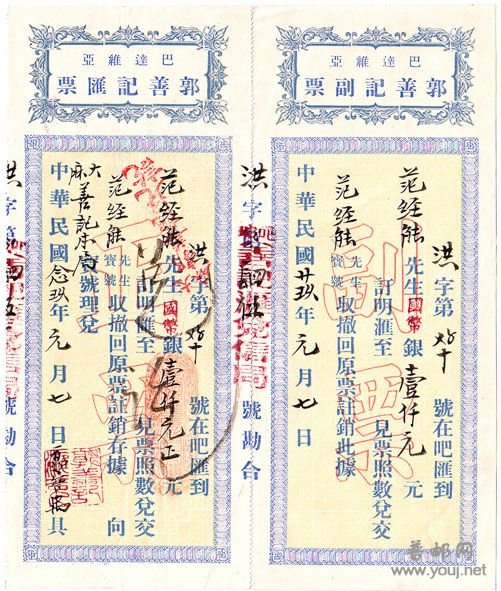 亞維達巴
票副記善郭
洪字第 號在吧匯到
范經能先生國幣銀壹仟元 元
訂明匯至 見票照數兌交
范經能先生寶號收撤回原票註銷此據
中華民國廿玖年元月七日
副票
洪字第 肆伍 號勘合
亞維達巴
票匯記善郭
洪字第 號在吧匯到
范經能先生國幣銀壹仟元正元
訂明匯至 見票照數兌交
范經能先生寶號收撤回原票註銷存據 向
號理兌
中華民國念玖年元月七日 具
洪字第 肆伍
普邮网
www.youj.net